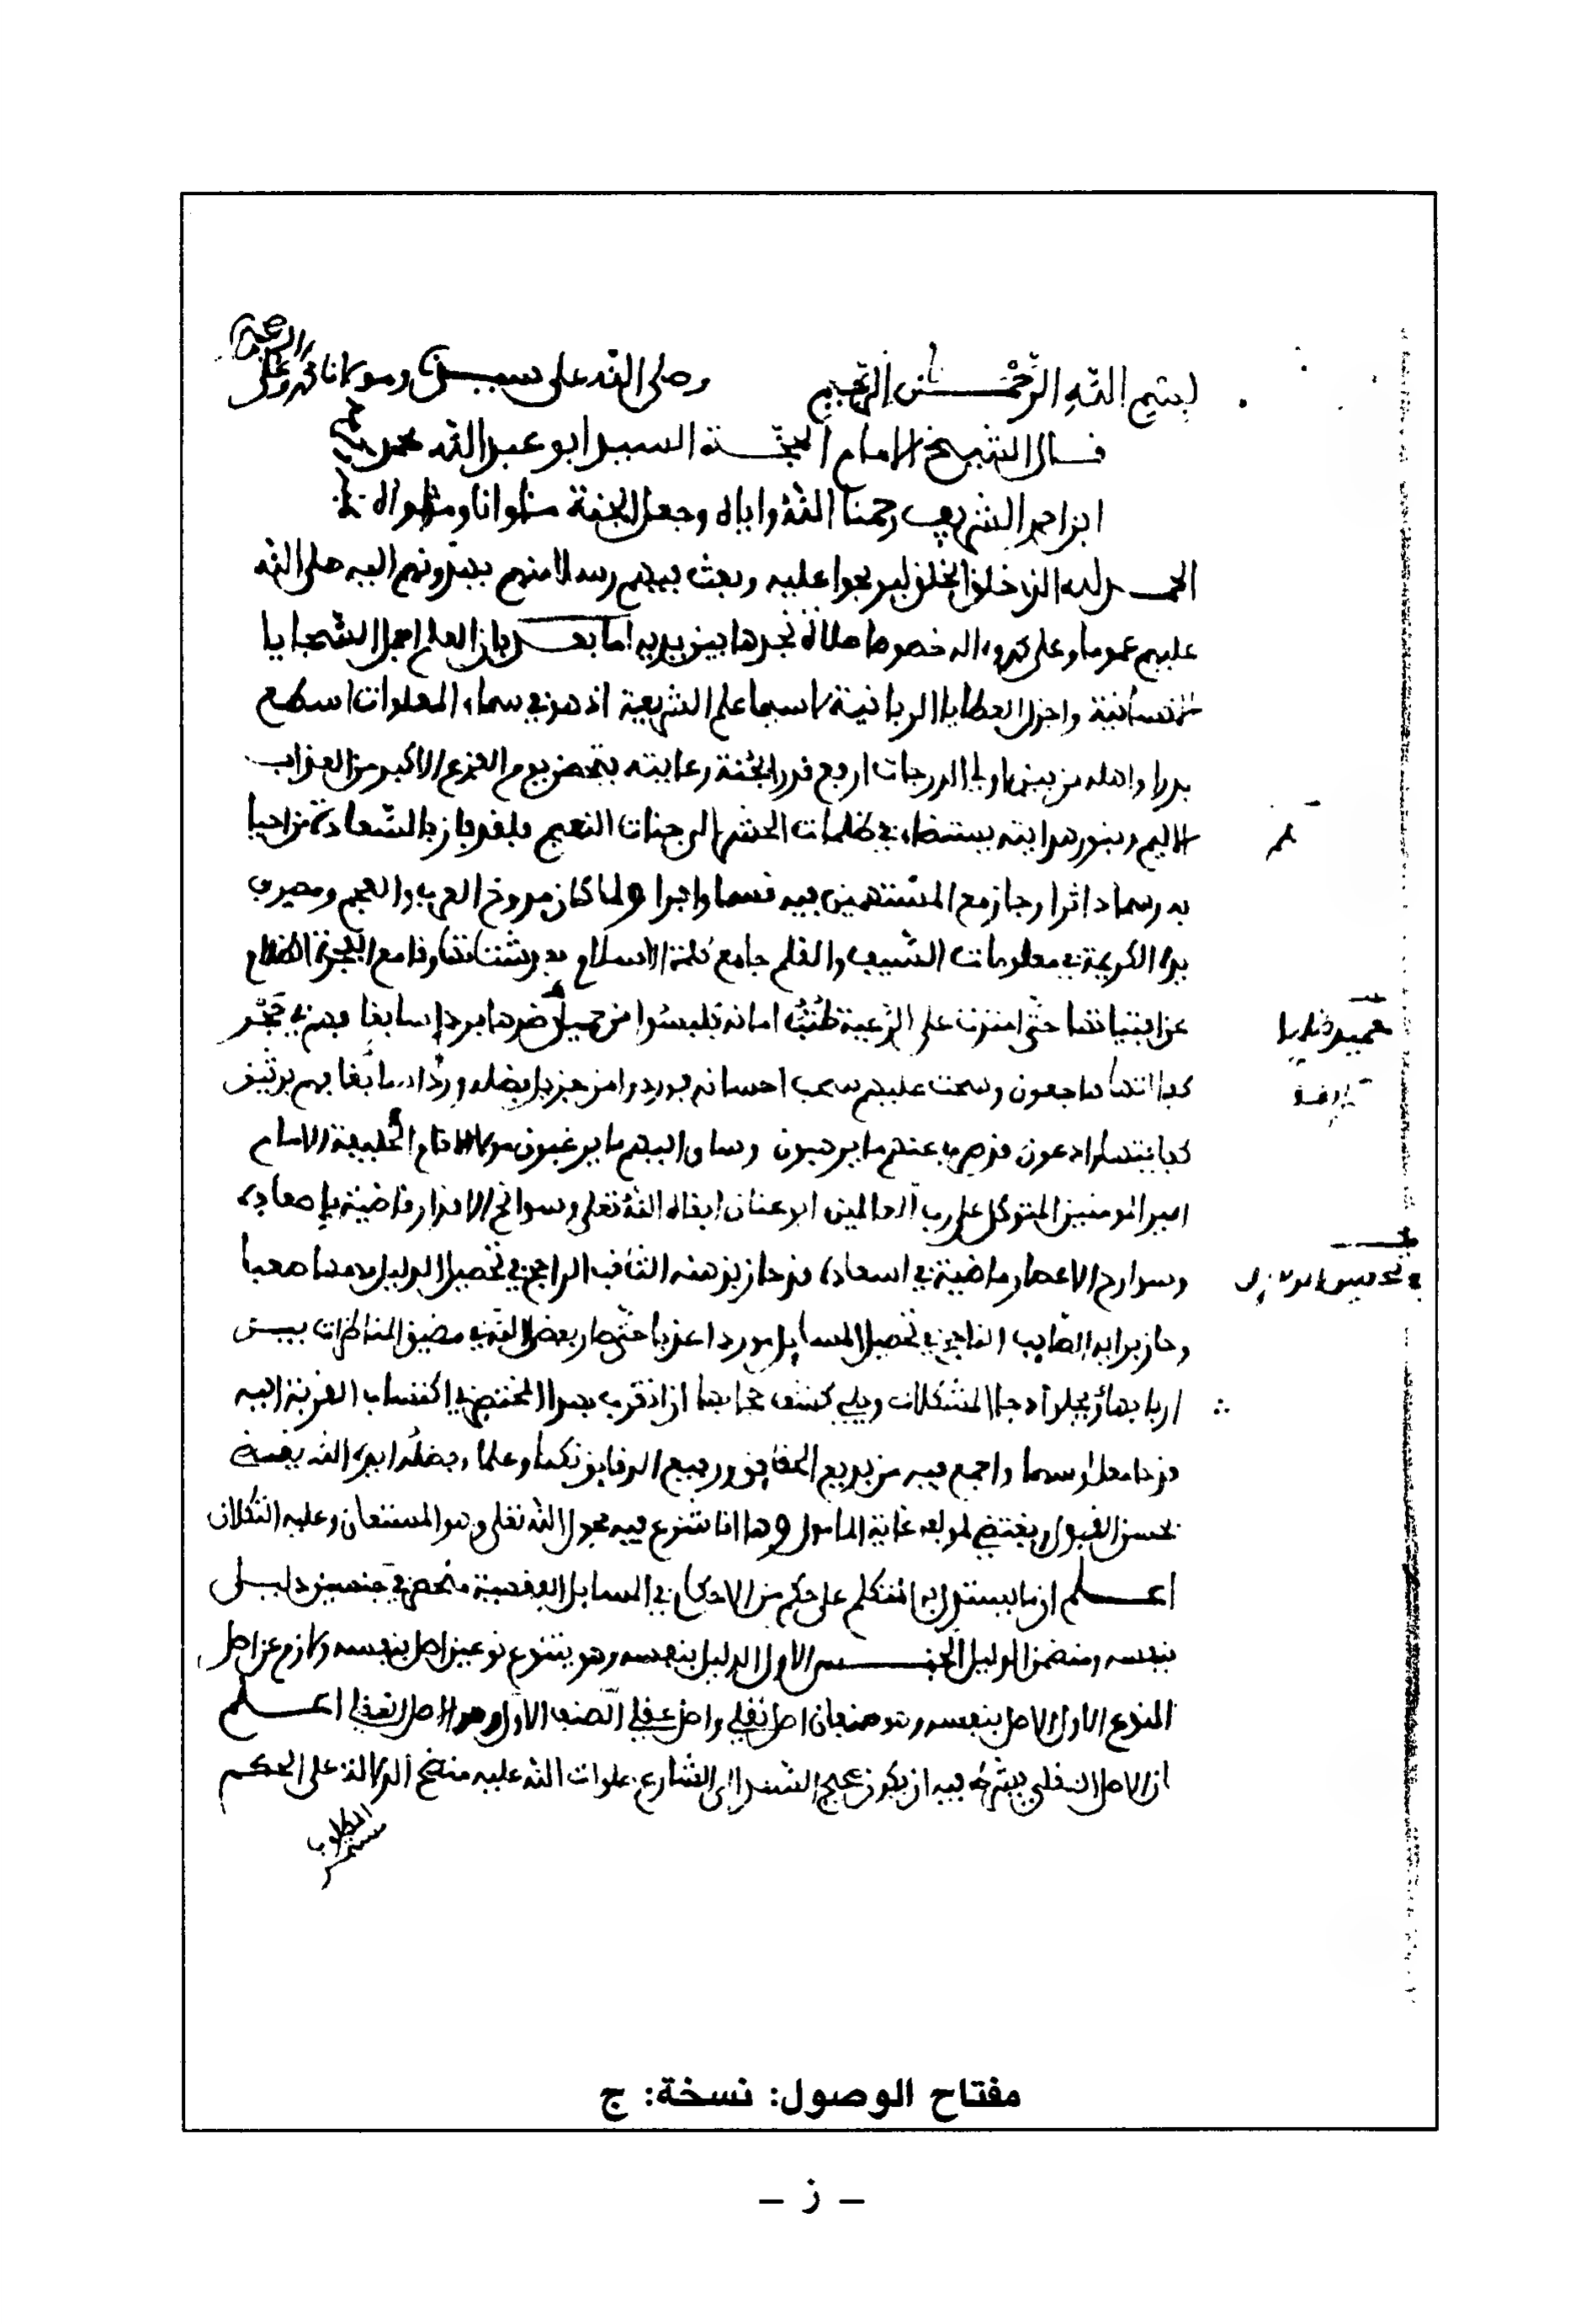 بسم الله الرحمن الرحيم وصلى الله على سيدنا ومولانا محمد وعلى اله وصحبه
قال الشيخ الامام الحجة السيد ابو عبد الله محمد بن
احمد الشريف رحمنا الله واياه وجعل الجنة مثوانا ومثواه
الحمد لله الذي خلق الخلق ليعرجوا عليه وبعث فيهم رسلا منهم يهدونهم اليه صلى الله
عليهم عموما وعلى محمد واله خصوصا صلاة نجدها بين يديه اما بعد فان العلم اجمل السجايا
النفسانية واجزل العطايا الربانية لا سيما علم الشريعة اذ هو في سماء المعلومات اسطع
بدرا واهله من بين اولي الدرجات ارفع قدرا فبجنة رعايته يتحصن يوم الفزع الاكبر من العذاب
الاليم وبنور هدايته يستضاء في ظلمات الحشر الى جنات النعيم فلقد فاز بالسعادة من احيا
به رسما داثرا وحاز مع المستهمين فيه قسما وافرا ولما كان مروخ العرب والعجم ومصرف
يده الكريمة في معلومات السيف والقلم جامع كلمة الاسلام بعد شتاتها وقامع الفجرة الظلام
عن افتياتها حتى امتدت على الرعية طنب امانه فلبسوا من جميل بردا سابغا فهم في
كما انتشاء هاجعون وسحت عليهم سحب احسانه فوردوا من جزيل فضله وردا سائغا فهم
وساق اليهم ما يرغبون مولانا الخليفة الامام
امير المومنين المتوكل على رب العالمين ابو عنان ابقاه الله تعلى وسوانح الاقدار قاضية باصعاده
وسوارح الاعصار ماضية في اسعاده قد حاز بذهنه الثاقب الراجح في تحصيل الدليل ما صعبا
وحاز برايه الصايب الناجح في تحصيل المسايل موردا عذبا حتى صار بعض الفته في مضيق المناظرات بين
اربابها يجلو دجا المشكلات ويلي كشف حجابها
واجمع فيه من بديع الحقايق ورفيع الدقايق نكتا وعلما وبفضله ايده الله يقضى
بحسن القبول ويقتضي لمولفه غاية المامول وها انا شرع فيه بحول الله تعلى وهو المستعان وعليه التكلان
اعلم ان ما يستدل به المتكلم على حكم من الاحكام في المسايل الفقهية منحصر في جنسين دليل
بنفسه ومتضمن الدليل الجنس الاول الدليل بنفسه وهو يتنوع نوعين اصل بنفسه ولازم عن اصل
النوع الاول الاصل بنفسه وهو صنفان اصل نقلي واصل عقلي الصنف الاول وهو الاصل النقلي اعلم
ان الاصل النقلي يشترط فيه ان يكون صحيح السند الى الشارع صلوات الله عليه متضح الدلالة على الحكم
المطلوب
مستمر
مفتاح الوصول: نسخة: ج
– ز –